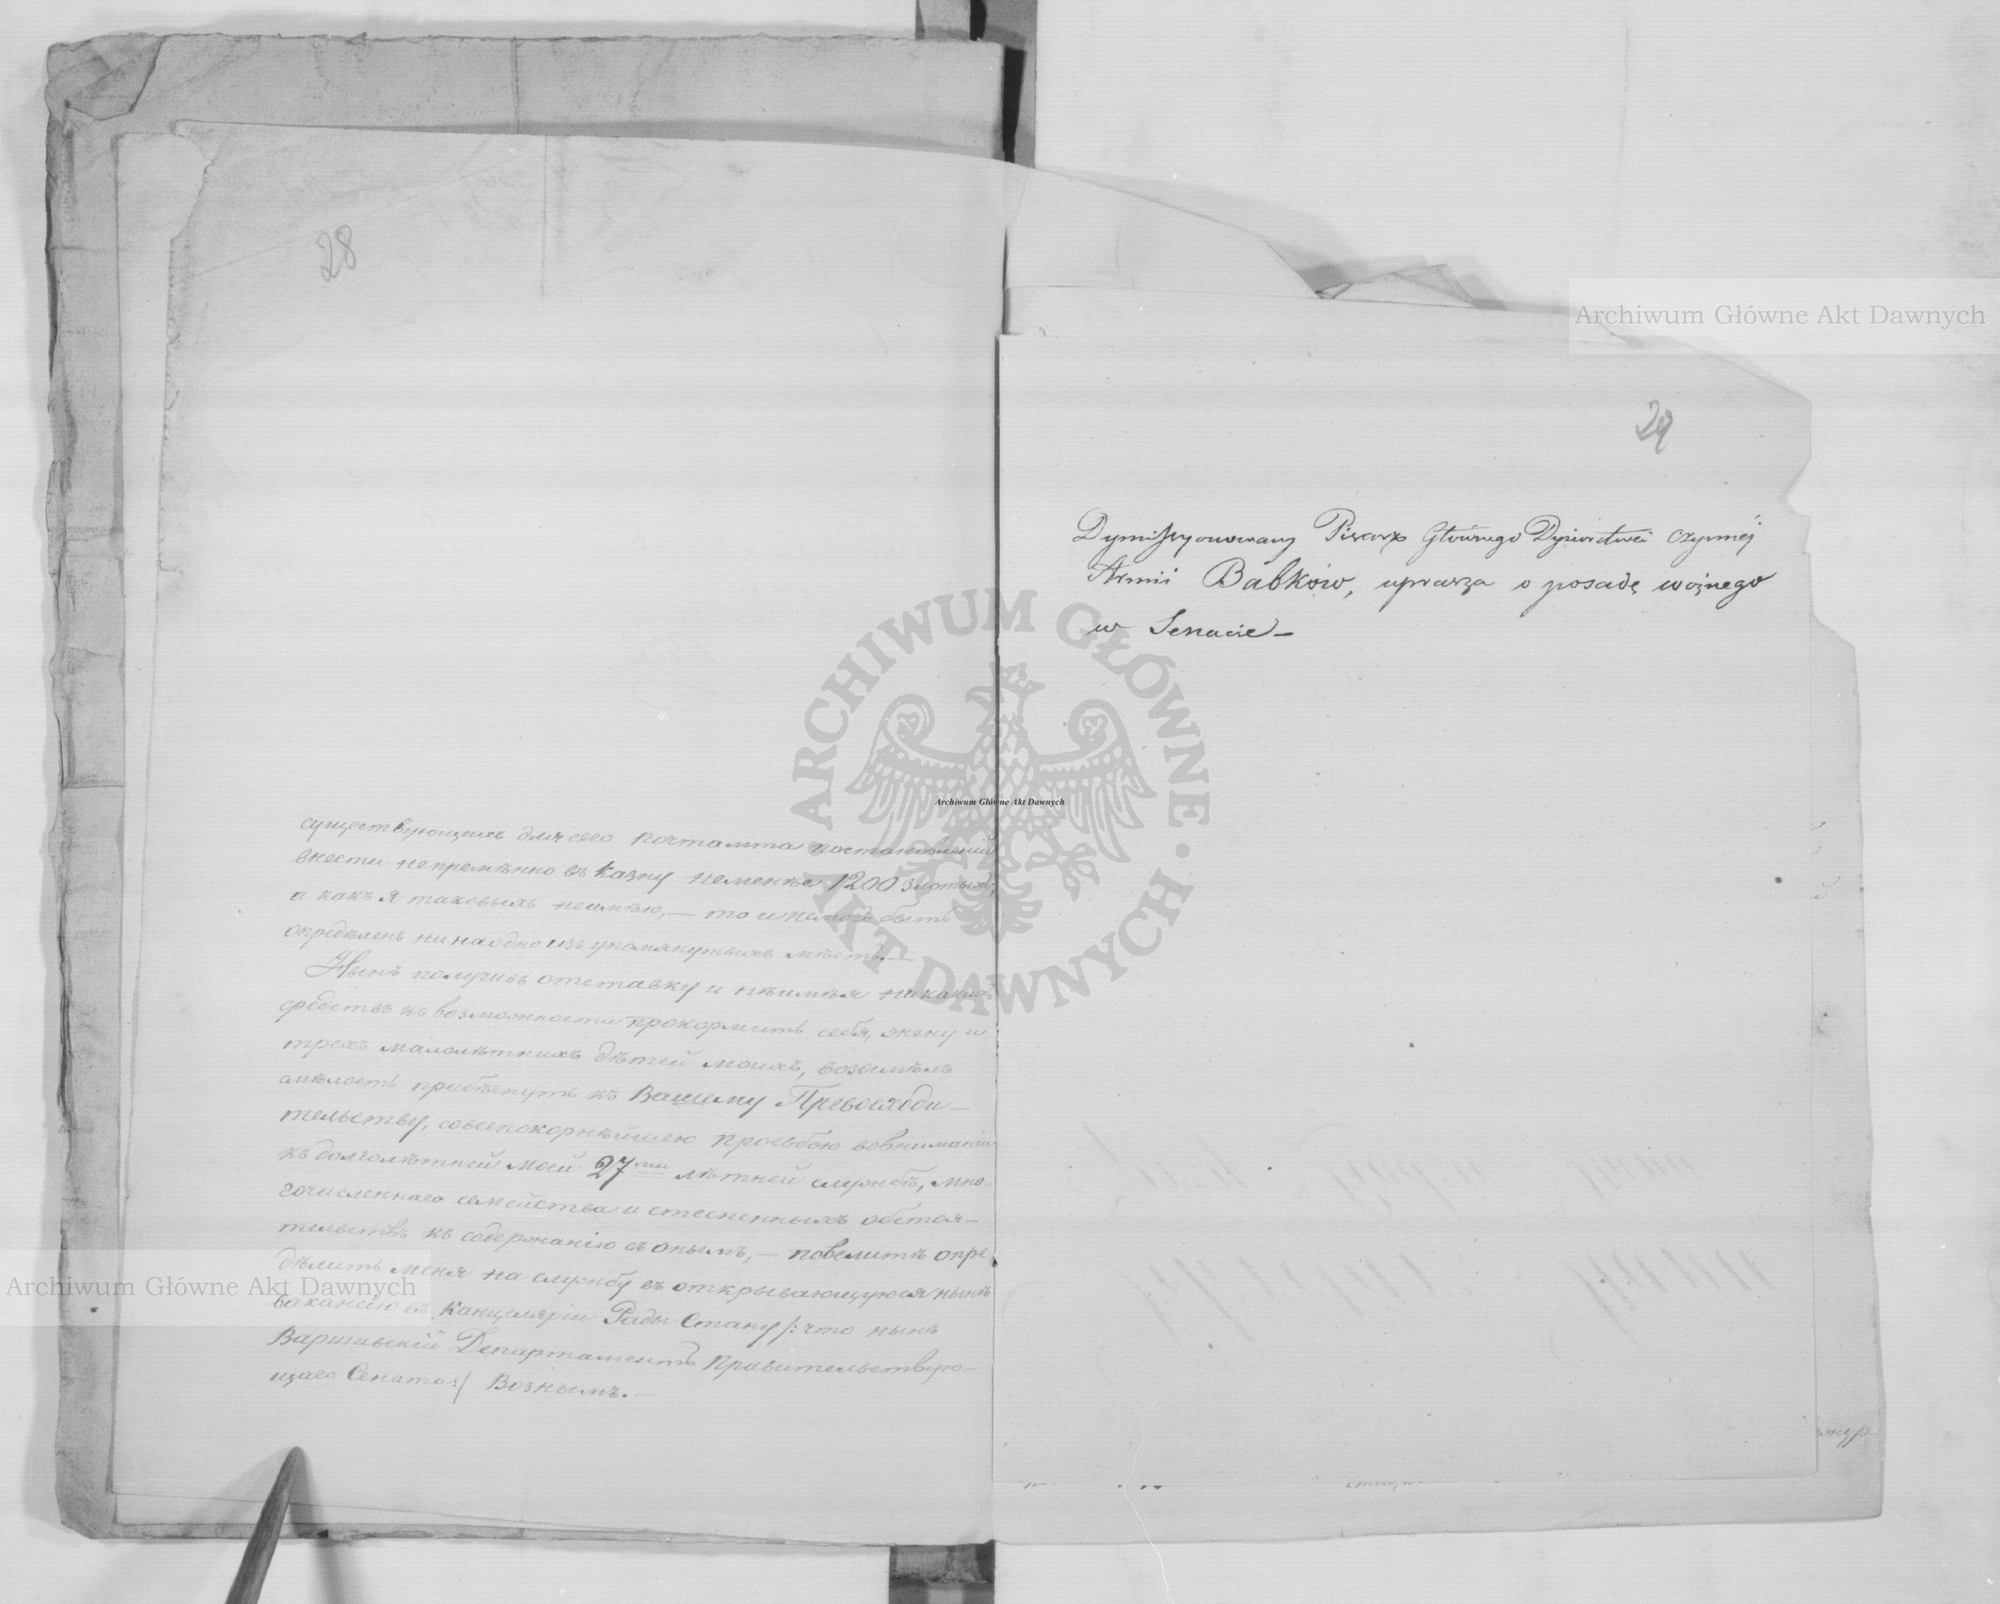 28
существующихъ для сего почтамта постановленій
внести непремѣнно въ казну неменѣе 1200 злотыхъ,
а какъ я таковыхъ неимѣю, — то и немогъ быть
опредѣленъ ни на одно изъ упомянутыхъ мѣстъ. —
Нынѣ получивъ отставку и неимѣя никакихъ
средствъ къ возможности прокормить себя, жену и
трехъ малолѣтнихъ дѣтей моихъ, возымѣлъ
смѣлость прибѣгнуть къ Вашему Превосходи—
тельству, со всепокорнѣйшею просьбою во вниманіи
къ долголѣтней моей 27ми лѣтней службѣ, мно-
гочисленнаго семейства и стесненныхъ обстоя—
тельствъ къ содержанію съ онымъ, — повелить опре-
дѣлить меня на службу въ открывающуюся нынѣ
вакансію въ Канцеляріи Рады Стану /: что нынѣ
Варшавскій Департаментъ Правительствую—
щаго Сената :/ Вознымъ. —
29
Dymissyonowany Pisarz Głównego Dyżurstwa Czynnéj
Armii Babków, uprasza o posadę woźnego
w Senacie —
Archiwum Główne Akt Dawnych
Archiwum Główne Akt Dawnych
Archiwum Główne Akt Dawnych
ARCHIWUM GŁÓWNE · AKT DAWNYCH ·